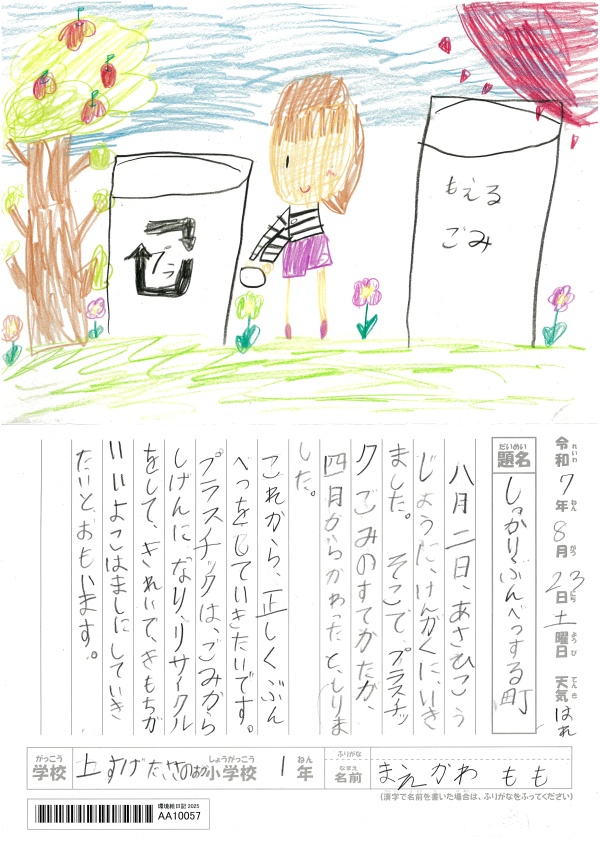 もえる
ごみ
プラ
令和7年8月23日土曜日 天気 はれ
れいわ ねん がつ にち ようび てんき
だいめい
題名 しっかりぶんべつする町
八月二日、あさひこう
じょうに、けんがくに、いき
ました。そこで、プラスチッ
クごみのすてかたが、
四月からかわったと、しりま
した。
これから、正しくぶん
べつをしていきたいです。
プラスチックは、ごみから
しげんになり、リサイクル
をして、きれいで、きもちが
いいよこはまにしていき
たいと、おもいます。
がっこう しょうがっこう ねん
学校 上すげたささのおか小学校 1年
ふりがな
なまえ
名前 まえかわ もも
(漢字で名前を書いた場合は、ふりがなをふってください)
環境絵日記2025
AA10057